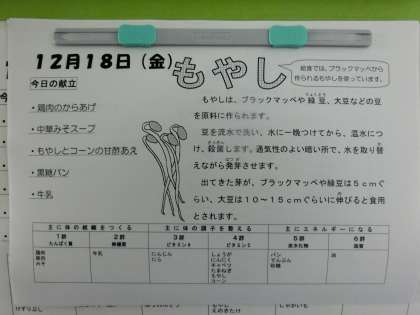 12月18日(金)
もやし
給食では、ブラックマッペから
作られるもやしを使っています。
今日の献立
・鶏肉のからあげ
・中華みそスープ
・もやしとコーンの甘酢あえ
・黒糖パン
・牛乳
もやしは、ブラックマッペや緑豆、大豆などの豆
を原料に作られます。
豆を流水で洗い、水に一晩つけてから、温水につ
け、殺菌します。通気性のよい暗い所で、水を取り替
えながら発芽させます。
出てきた芽が、ブラックマッペや緑豆は5cmぐ
らい、大豆は10～15cmぐらいに伸びると食用
とされます。
主に体の組織をつくる 主に体の調子を整える 主にエネルギーになる
1群 2群 3群 4群 5群 6群
たんぱく質 無機質 ビタミンA ビタミンC 炭水化物 脂質
鶏肉 牛乳 にんじん しょうが パン 油
豚肉 にら にんにく でんぷん
みそ キャベツ 砂糖
たまねぎ
もやし
コーン